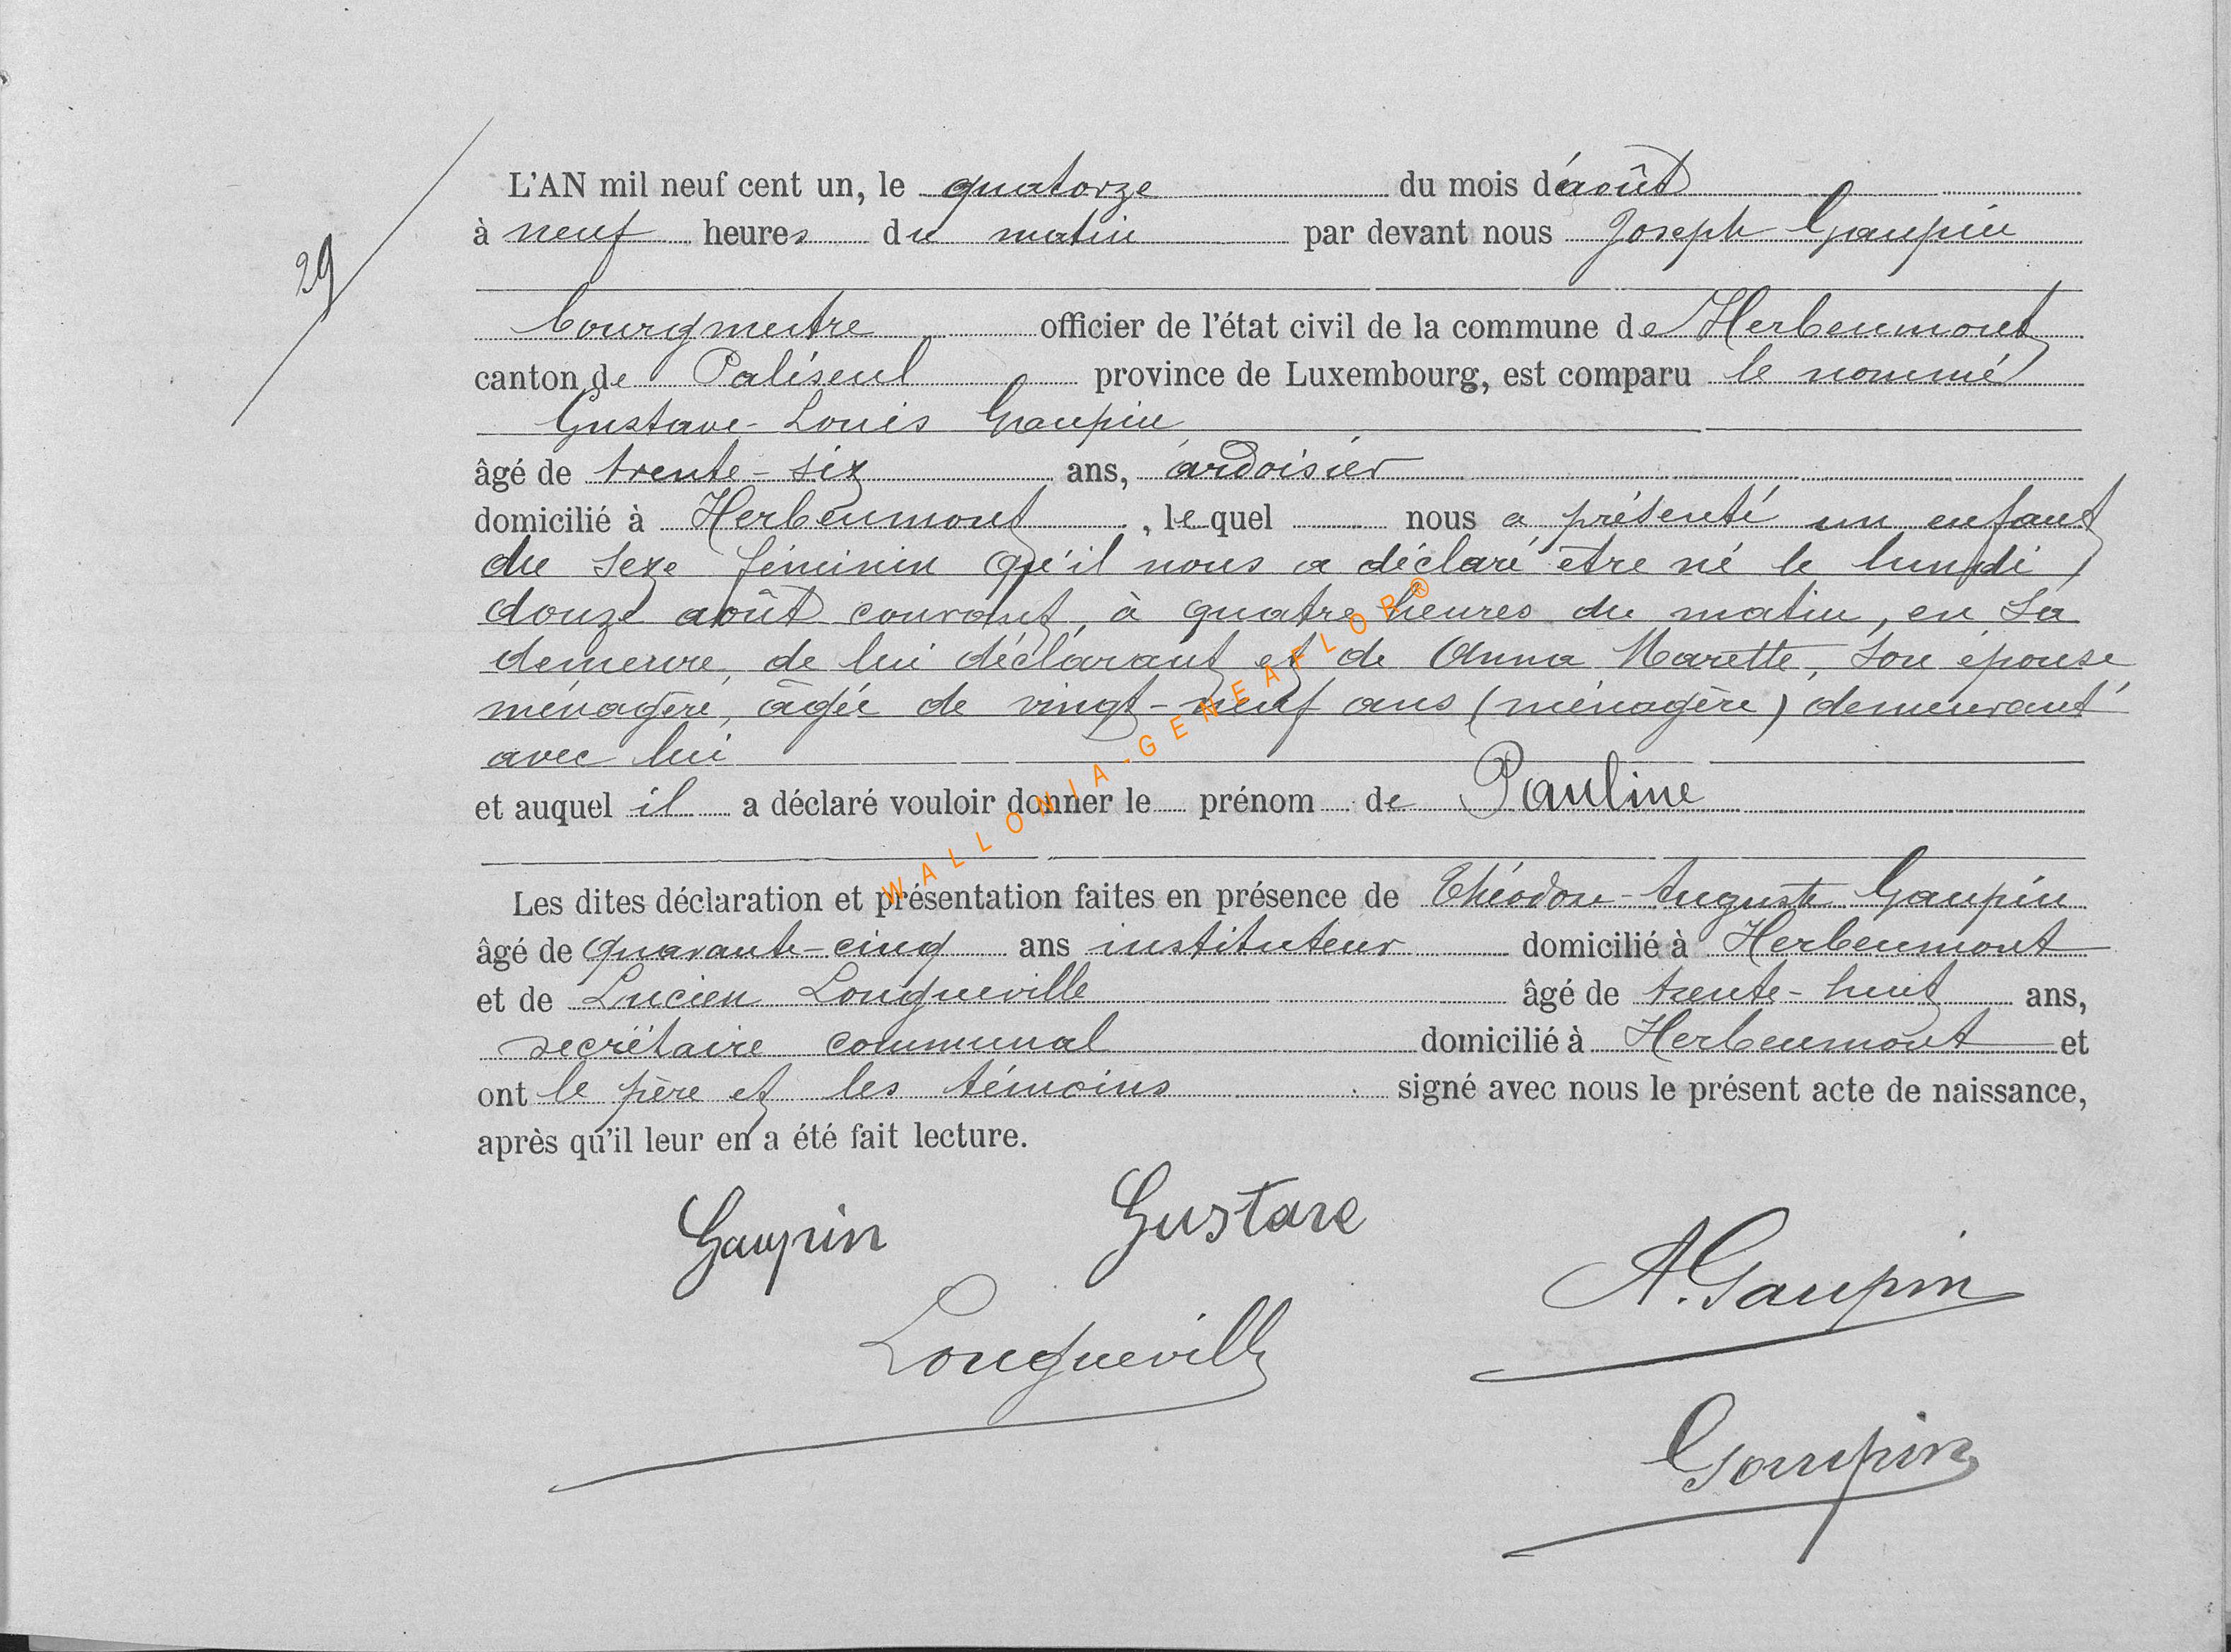 29
L'AN mil neuf cent un, le quatorze du mois d'août
à neuf heures du matin par devant nous Joseph Gaupin
bourgmestre officier de l'état civil de la commune de Herbeumont
canton de Paliseul province de Luxembourg, est comparu le nommé
Gustave-Louis Gaupin
âgé de trente-six ans, ardoisier
domicilié à Herbeumont, lequel nous a présenté un enfant
du sexe féminin qu'il nous a déclaré être né le lundi
douze août courant, à quatre heures du matin, en sa
demeure, de lui déclarant et de Anna Marette, son épouse
ménagère, âgée de vingt-neuf ans (ménagère) demeurant
avec lui
et auquel il a déclaré vouloir donner le prénom de Pauline
Les dites déclaration et présentation faites en présence de Théodore-Auguste Gaupin
âgé de quarante-cinq ans instituteur domicilié à Herbeumont
et de Lucien Longueville âgé de trente-huit ans,
secrétaire communal domicilié à Herbeumont et
ont le père et les témoins signé avec nous le présent acte de naissance,
après qu'il leur en a été fait lecture.
Gaupin Gustave
A. Gaupin
Longueville
Gaupin
WALLONIA-GENEAFLOR®